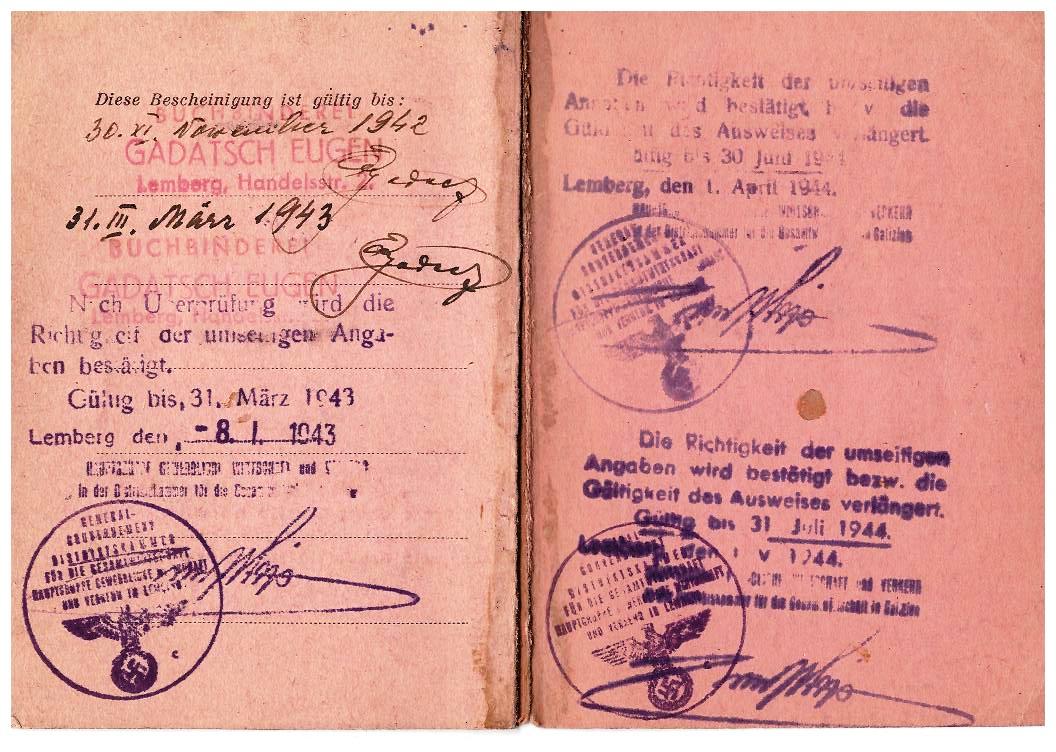 Diese Bescheinigung ist gültig bis:
BUCHBINDEREI
30. XI. November 1942
GADATSCH EUGEN
Lemberg, Handelsstr.
31. III. März 1943
BUCHBINDEREI
GADATSCH EUGEN
Lemberg,
Nach Überprüfung wird die
Richtigkeit der umseitigen Anga-
ben bestätigt.
Gültig bis, 31. März 1943
Lemberg den, - 8. I. 1943
HAUPTGRUPPE GEWERBLICHE WIRTSCHAFT und
in der Distriktskammer für die
GENERAL-
GOUVERNEMENT
DISTRIKTSKAMMER
FÜR DIE GESAMTWIRTSCHAFT
HAUPTGRUPPE GEWERBLICHE WIRTSCHAFT
UND VERKEHR IN LEMBERG
Die Richtigkeit der umseitigen
Angaben wird bestätigt bezw. die
Gültigkeit des Ausweises verlängert.
Gültig bis 30 Juni 1944
Lemberg, den 1. April 1944.
VERKEHR
in der Distriktskammer für die Gesamtwirtschaft in Galizien
GENERAL-
GOUVERNEMENT
DISTRIKTSKAMMER
Die Richtigkeit der umseitigen
Angaben wird bestätigt bezw. die
Gültigkeit des Ausweises verlängert.
Gültig bis 31 Juli 1944.
Lemberg, den V 1944.
WIRTSCHAFT und VERKEHR
für die Gesamtwirtschaft in Galizien
GOUVERNEMENT
DISTRIKTSKAMMER
FÜR DIE GESAMTWIRTSCHAFT
HAUPTGRUPPE
UND VERKEHR IN LEMBERG